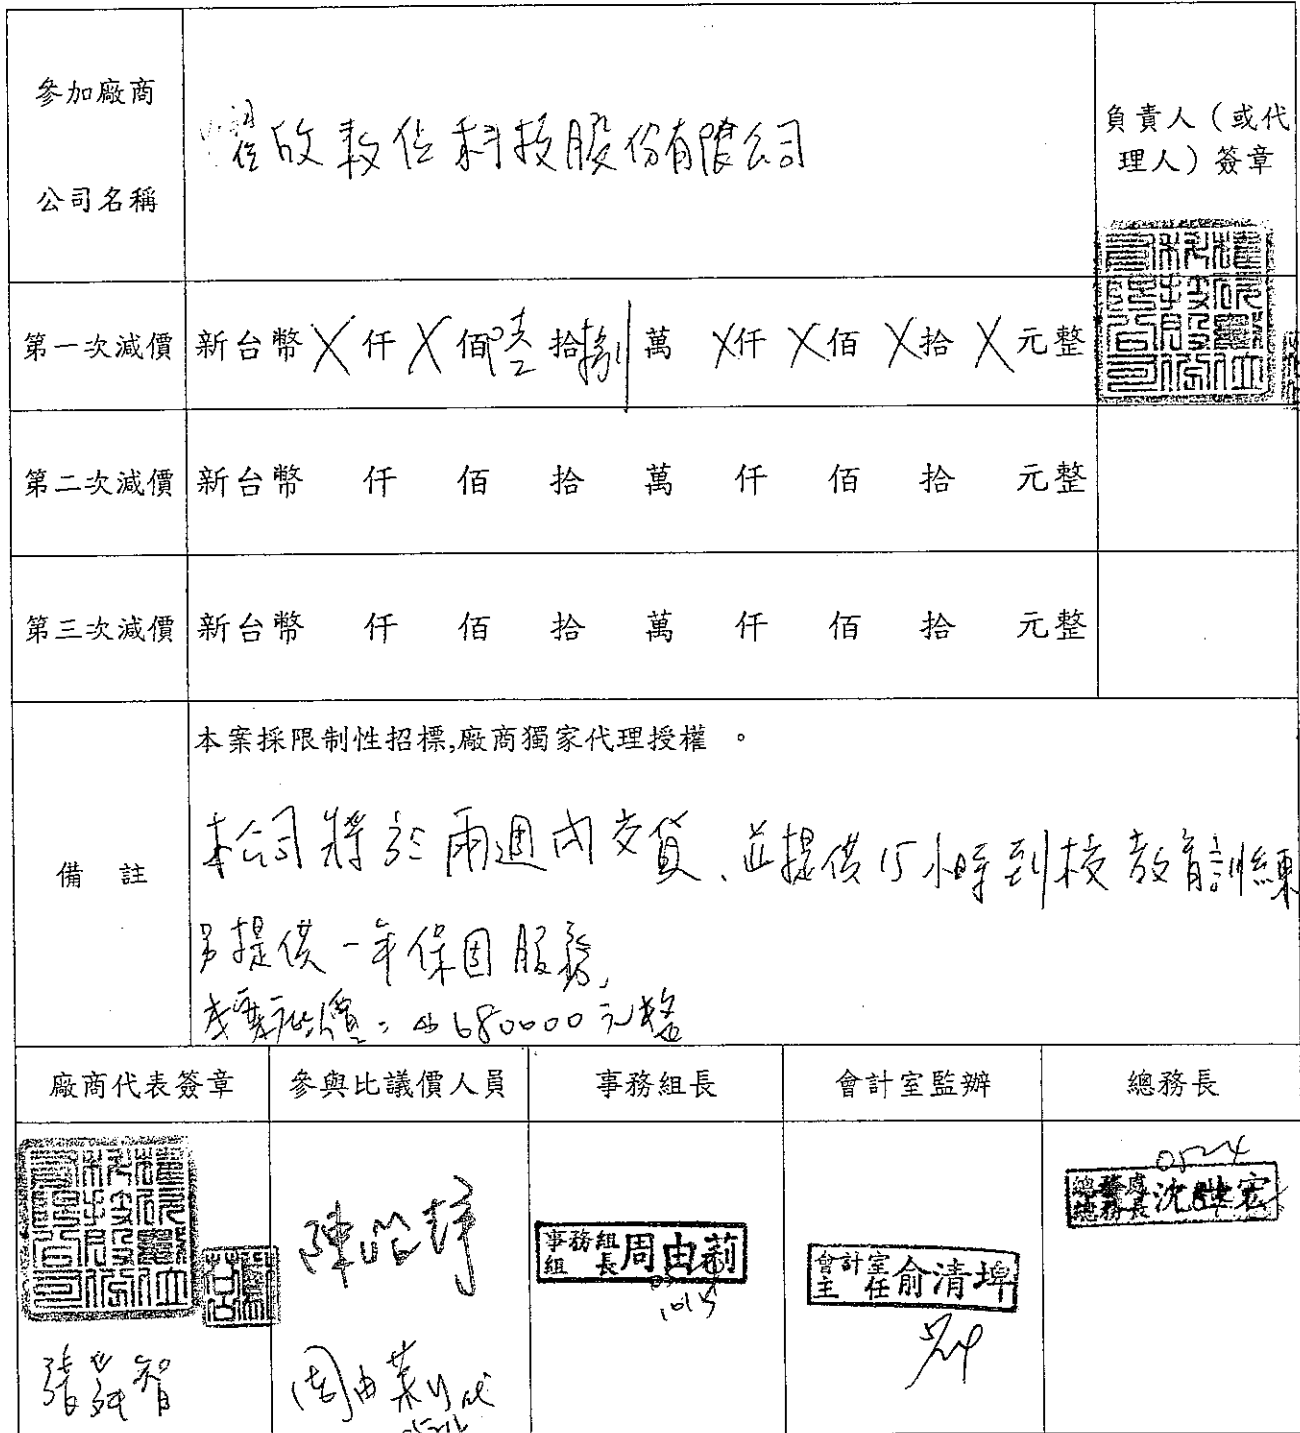 參加廠商
公司名稱
數位科技股份有限公司
負責人(或代
理人)簽章
第一次減價 新台幣 X 仟 X 佰 陸 拾 捌 萬 X 仟 X 佰 X 拾 X 元整
第二次減價 新台幣 仟 佰 拾 萬 仟 佰 拾 元整
第三次減價 新台幣 仟 佰 拾 萬 仟 佰 拾 元整
備 註
本案採限制性招標,廠商獨家代理授權 。
本公司將於兩週內交貨、並提供15小時到校教育訓練
另提供一年保固服務,
680000元整
廠商代表簽章 參與比議價人員 事務組長 會計室監辦 總務長
事務組
組 長 周由莉
會計室
主 任 俞清埤
總務處
總務長
0524
5/24
周由莉